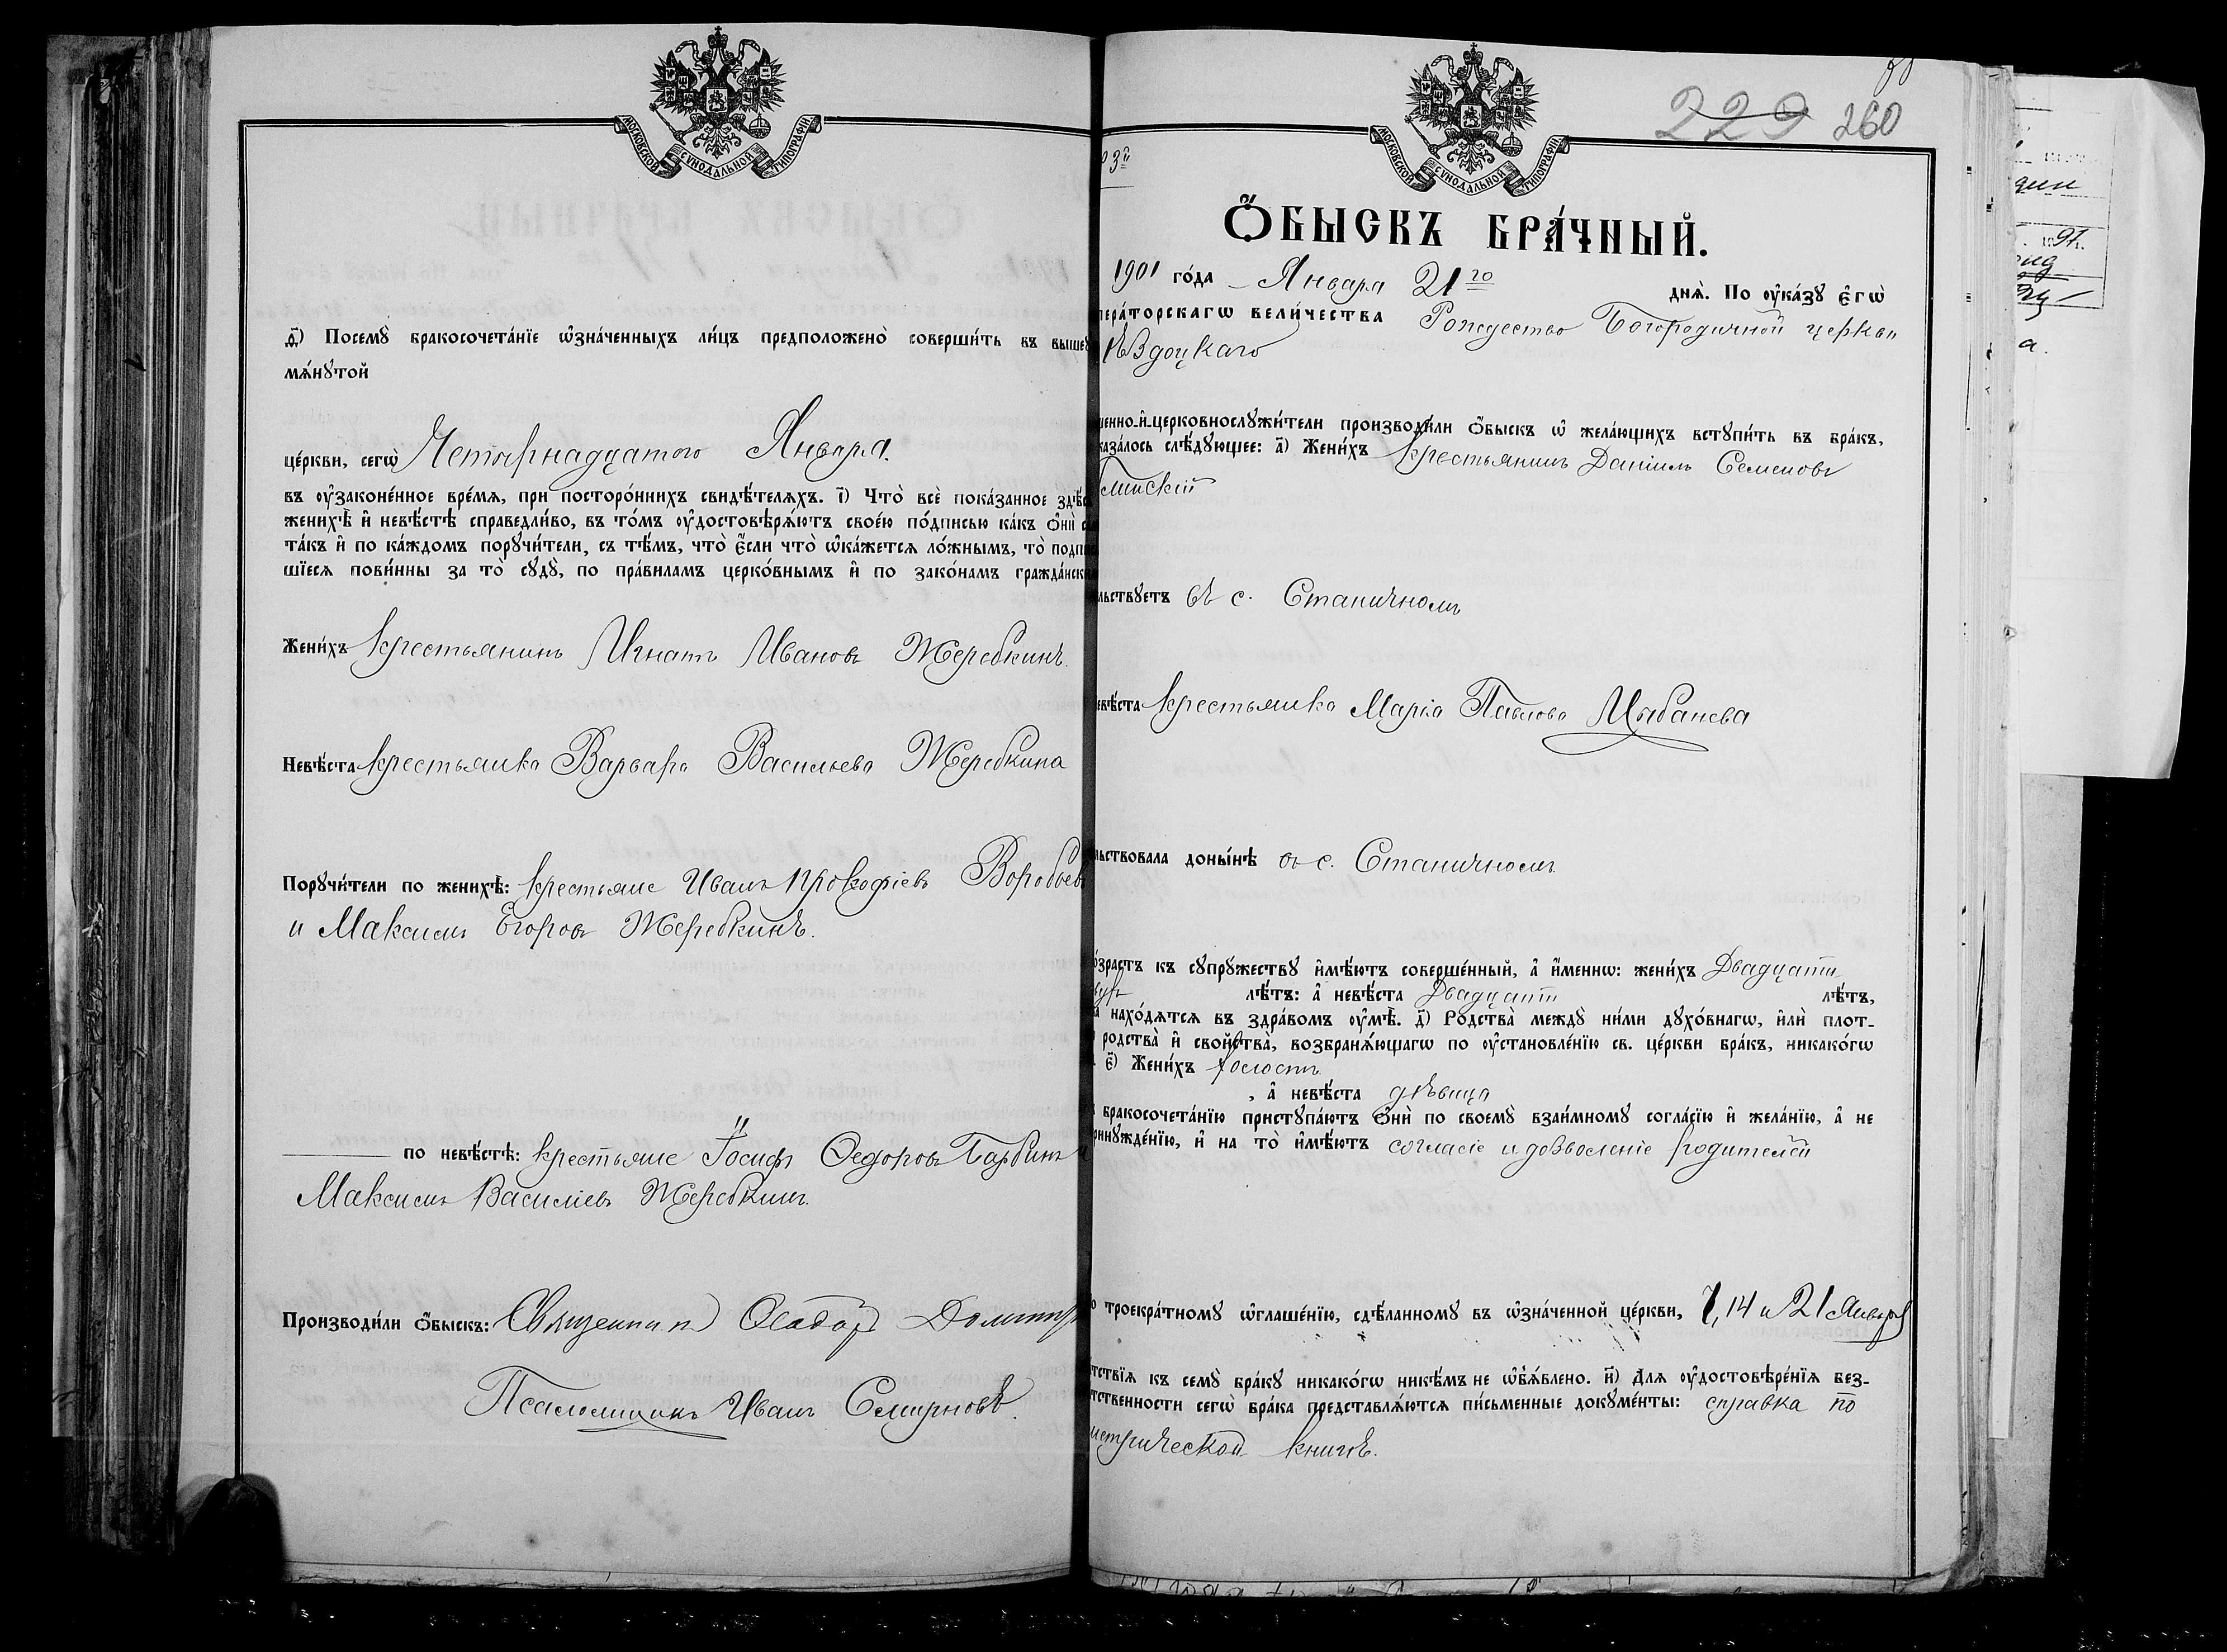 МОСКОВСКОЙ СУНОДАЛЬНОЙ ТИПОГРАФІИ
д҃) Посемꙋ̀ бракосочета́нїе ѡ҆зна́ченныхъ ли́цъ предположено̀ соверши́ть въ выше
мѧ́нꙋтой
це́ркви, сегѡ̀ Четырнадцатого Января.
въ ᲂу҆законе́нное вре́мѧ, при посторо́ннихъ свидѣ́телѧхъ. і҃) Что̀ всѐ пока́занное здѣ́с
женихѣ̀ и҆ невѣ́стѣ справедли́во, въ то́мъ ᲂу҆достовѣрѧ́ютъ свое́ю по́дписью ка́къ ѻ҆нѝ
та́къ и҆ по ка́ждомъ порꙋчи́тели, съ тѣ́мъ, что̀ є҆́сли что̀ ѡ҆ка́жетсѧ ло́жнымъ, то̀ подпи
шїесѧ пови́нны за то̀ сꙋдꙋ̀, по пра́виламъ церко́внымъ и҆ по зако́намъ гражда́нск
Жени́хъ крестьянинъ Игнатъ Ивановъ Жеребкинъ.
Невѣ́ста крестьянка Варвара Васильева Жеребкина
Порꙋчи́тели по женихѣ̀: крестьяне Иванъ Прокофіевъ Воробьев
и Максимъ Егоровъ Жеребкинъ.
по невѣ́стѣ: крестьяне Іосифъ Ѳедоровъ и
Максимъ Василіевъ Жеребкинъ.
Производи́ли ѻ҆́быскъ: Священникъ
Псаломщикъ Иванъ Смирновъ.
229 260
МОСКОВСКОЙ СУНОДАЛЬНОЙ ТИПОГРАФІИ
Ѻ҆́БЫСКЪ БРА́ЧНЫЙ.
1901 го́да Января 21го днѧ̀. По ᲂу҆ка́зꙋ є҆гѡ̀
пера́торскагѡ вели́чества Рождество Богородичной церкви
шенно-и҆-церковнослꙋжи́тели производи́ли ѻ҆́быскъ ѡ҆ жела́ющихъ встꙋпи́ть въ бра́къ,
каза́лось слѣ́дꙋющее: а҃) Жени́хъ крестьянинъ Даніилъ Семеновъ
льствꙋетъ въ с. Станичномъ
евѣ́ста крестьянка Марія Павлова
льствовала доны́нѣ въ с. Станичномъ
о́зрастъ къ сꙋпрꙋжествꙋ и҆мѣ́ютъ соверше́нный, а҆ и҆́меннѡ: жени́хъ Двадцати
лѣ́тъ: а҆ невѣ́ста Двадцати лѣ́тъ,
нахо́дѧтсѧ въ здра́вомъ ᲂу҆мѣ̀. д҃) Родства̀ междꙋ̀ ни́ми дꙋхо́внагѡ, и҆лѝ плот-
родства̀ и҆ свойства̀, возбранѧ́ющагѡ по ᲂу҆становле́нїю св. це́ркви бра́къ, никако́гѡ
є҃) Жени́хъ холостъ
, а҆ невѣ́ста дѣвица
бракосочета́нїю пристꙋпа́ютъ ѻ҆нѝ по своемꙋ̀ взаи́мномꙋ согла́сїю и҆ жела́нїю, а҆ не
ринꙋжде́нїю, и҆ на то̀ и҆мѣ́ютъ согласіе и дозволеніе родителей
о троекра́тномꙋ ѡ҆глаше́нїю, сдѣ́ланномꙋ въ ѡ҆зна́ченной це́ркви, 7, 14 и 21 Января
тствїѧ къ семꙋ̀ бра́кꙋ никако́гѡ никѣ́мъ не ѡ҆б̾ѧ́влено. и҃) Длѧ ᲂу҆достовѣре́нїѧ без-
тственности сегѡ̀ бра́ка представлѧ́ютсѧ пи́сьменные докꙋме́нты: справка по
метрической книгѣ.